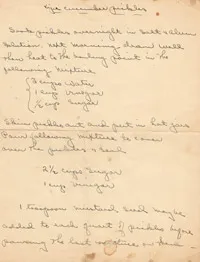 Ripe cucumber pickles
Soak pickles overnight in Salt & Alum
Solution. next morning drain well
then heat to the boiling point in the
following mixture
3 cups water
1 cup vinegar
½ cup sugar
Skim pickles out and put in hot jars
Pour following mixture to cover
over the pickles & seal
2½ cups Sugar
1 cup vinegar
1 teaspoon mustard Seed may be
added to each quart of pickles before
pouring the last mixture on them